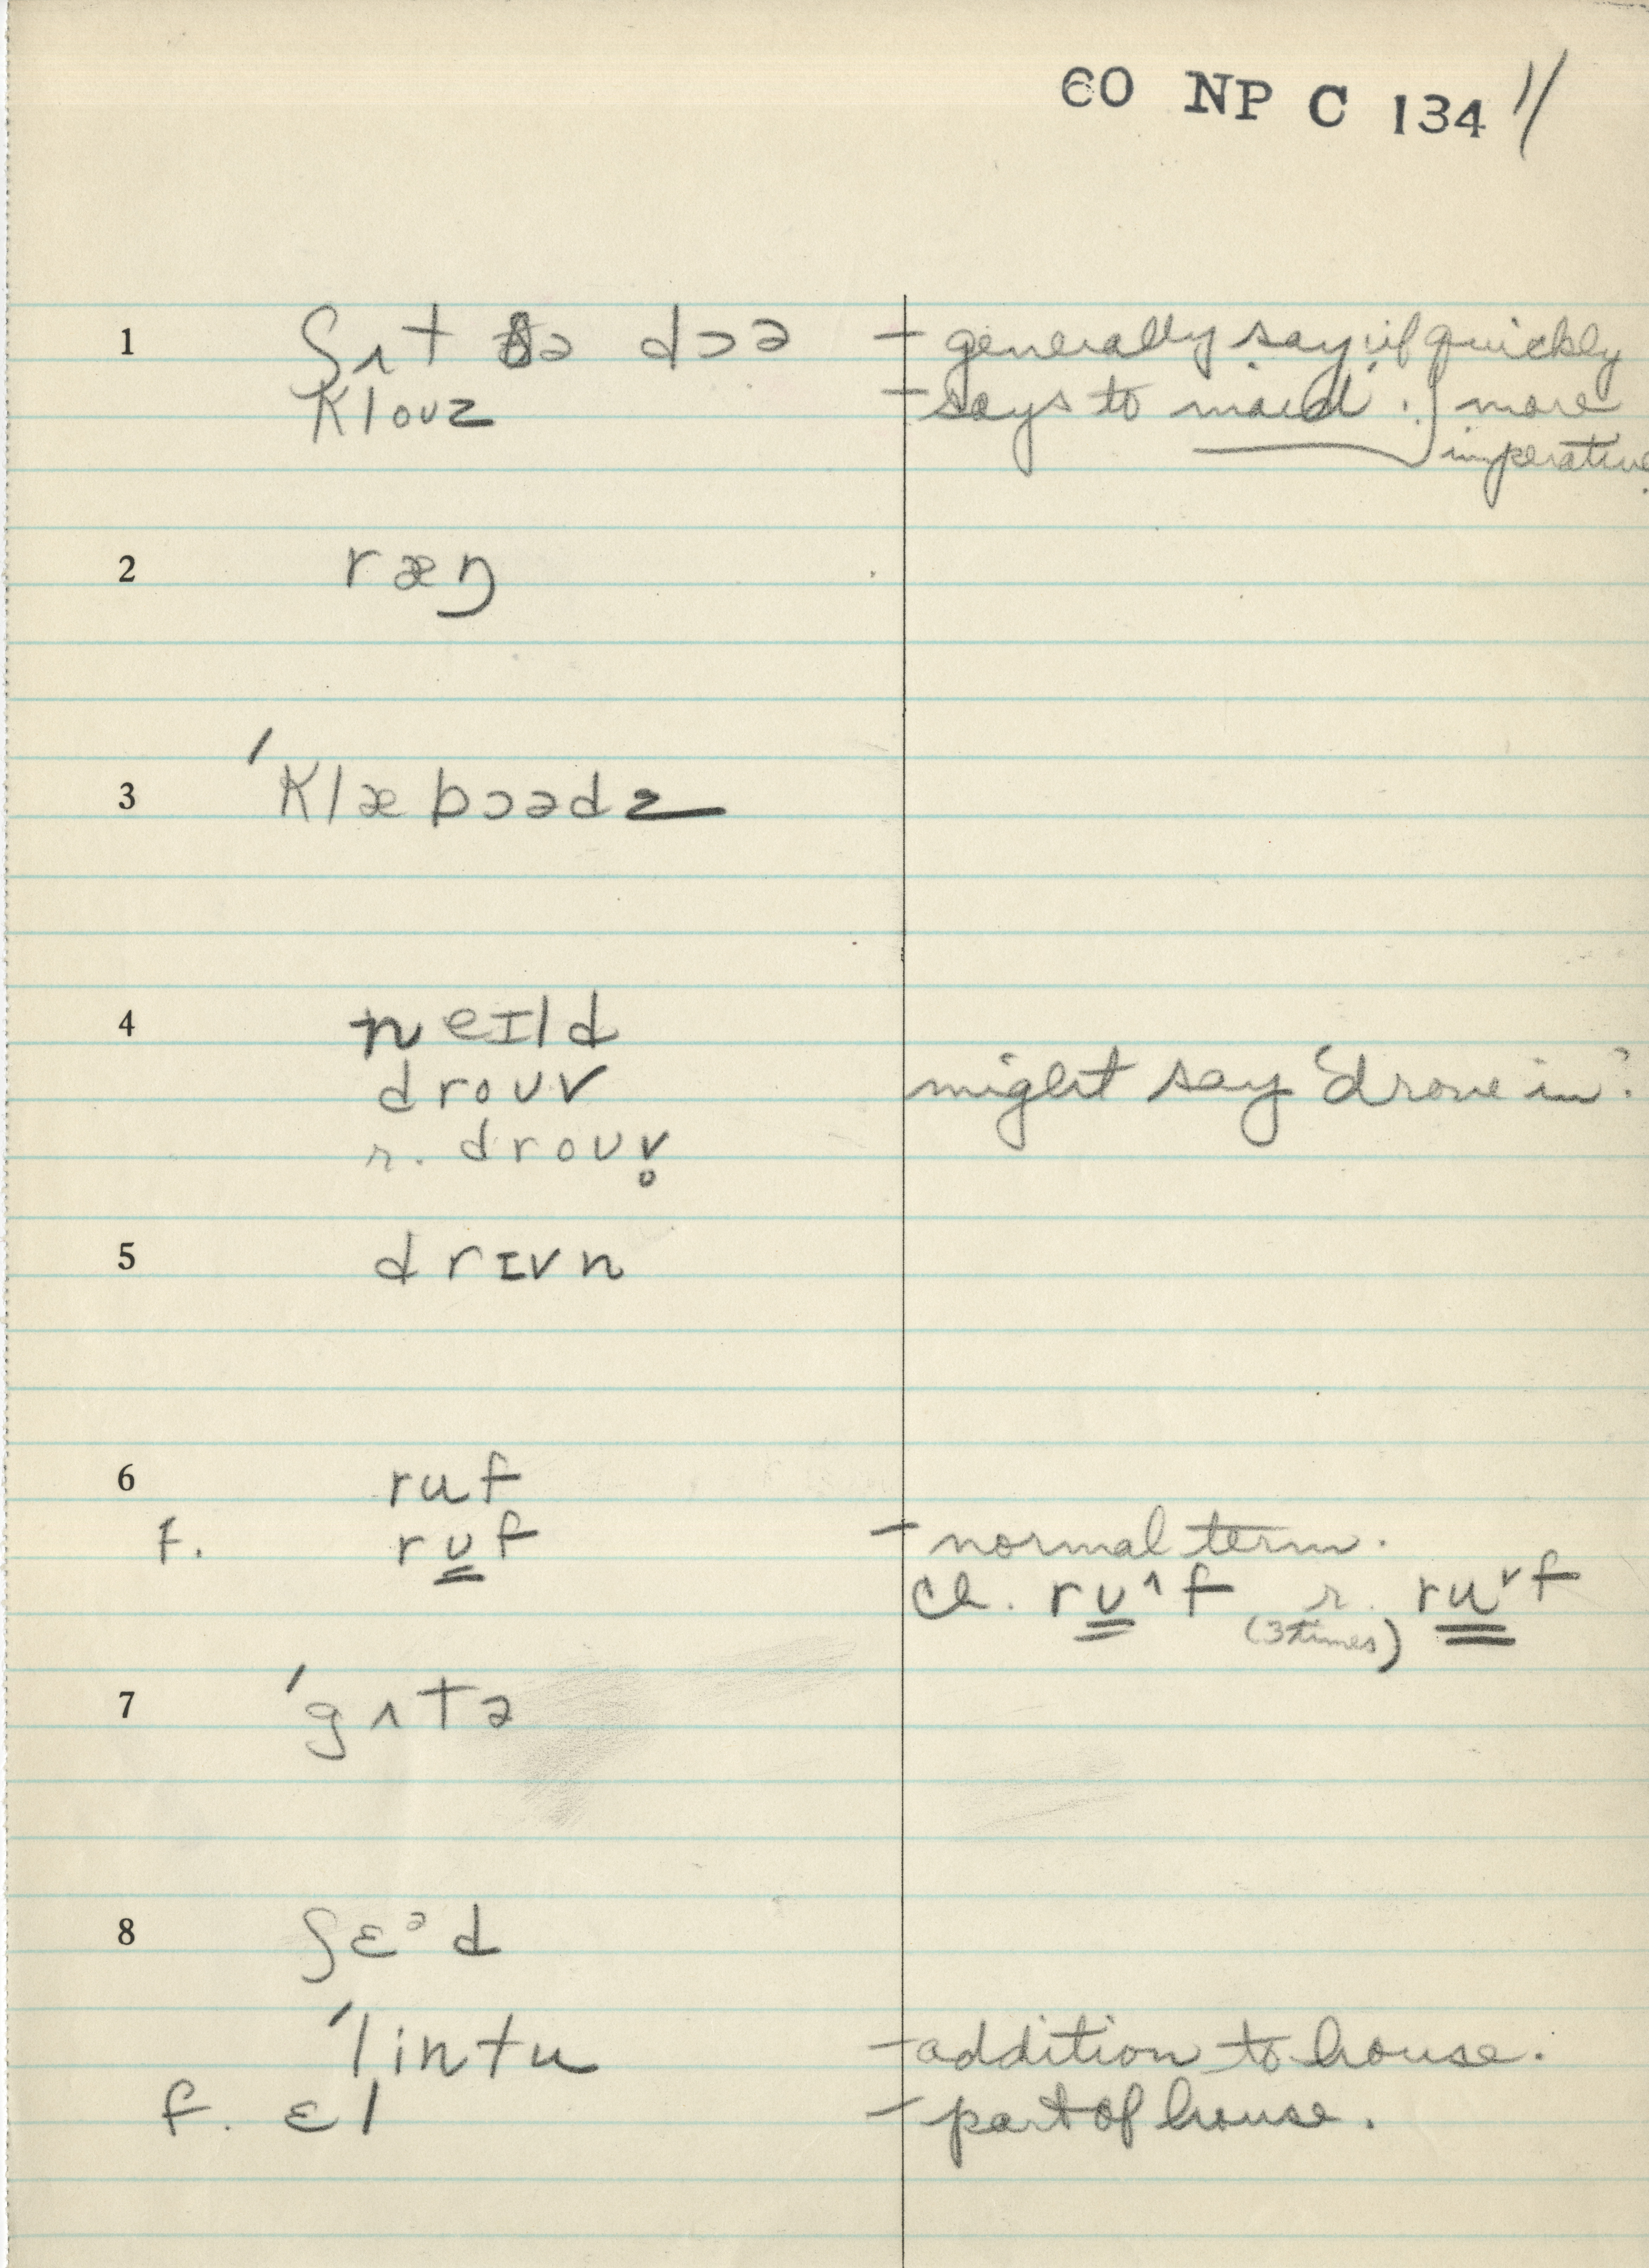 60 NP C 134 11/
1 ʃʌt ðə dɔə - generally say if quickly
klouz - says to maid. } more
imperative.
2 ræŋ
3 ˈklæbɔədz
4 neɪld
drouv might say 'drove in'.
r. drouv̥
5 drɪvn
6 ruf
f. rʊ̳f - normal term.
cl. rʊ̳^f r. ru̳ˇf
(3 times)
7 ˈgʌtə
8 ʃɛᵊd
ˈlintu - addition to house.
f. ɛl - part of house.